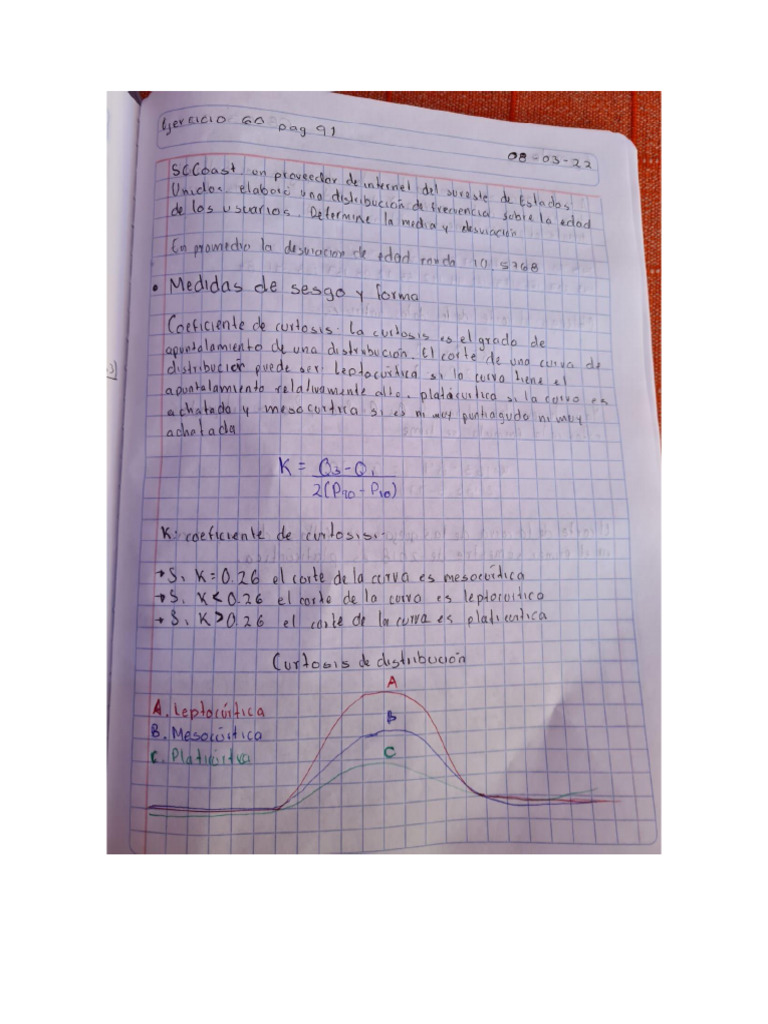 Ejercicio 60 pag 91
08-03-22
SCCoast un proveedor de internet del sureste de Estados
Unidos, elaboró una distribución de frecuencia sobre la edad
de los usuarios. Determine la media y desviación
En promedio la desviacion de edad ronda 10.5768
• Medidas de sesgo y forma
Coeficiente de curtosis: la curtosis es el grado de
apuntalamiento de una distribución. El corte de una curva de
distribución puede ser leptocúrtica si la curva tiene el
apuntalamiento relativamente alto, platicurtica si la curva es
achatada y mesocurtica si es ni muy puntiagudo ni muy
achatada
K = Q3-Q1
2(P90-P10)
K: coeficiente de curtosis.
→ Si K=0.26 el corte de la curva es mesocúrtica
→ Si K<0.26 el corte de la curva es leptocurtica
→ Si K>0.26 el corte de la curva es platicurtica
Curtosis de distribución
A
A. Leptocúrtica
B
B. Mesocúrtica
C
C. Platicúrtva